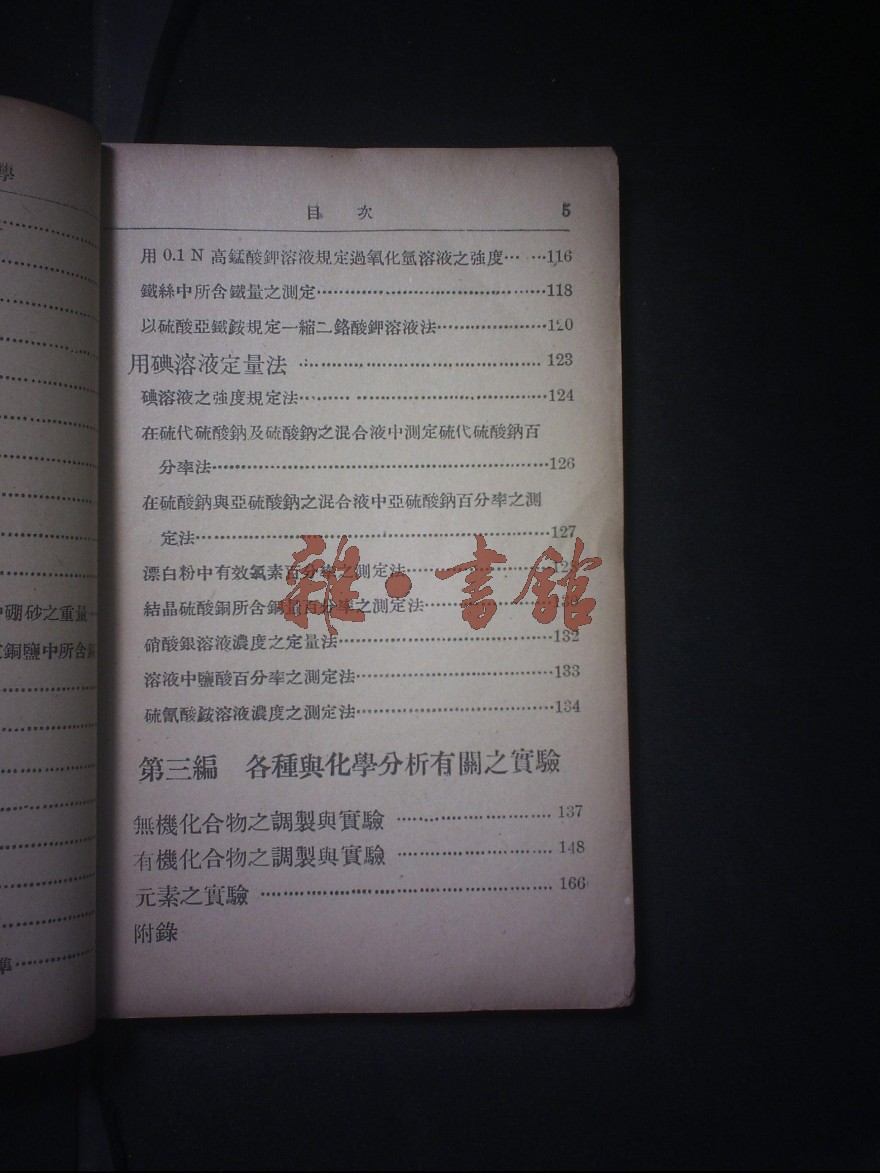 學
中硼砂之重量
銅鹽中所含
準
目 次 5
用 0.1 N 高錳酸鉀溶液規定過氧化氫溶液之強度……116
鐵絲中所含鐵量之測定……118
以硫酸亞鐵銨規定一縮二鉻酸鉀溶液法……120
用碘溶液定量法……123
碘溶液之強度規定法……124
在硫代硫酸鈉及硫酸鈉之混合液中測定硫代硫酸鈉百
分率法……126
在硫酸鈉與亞硫酸鈉之混合液中亞硫酸鈉百分率之測
定法……127
漂白粉中有效氯素百分率之測定法……
結晶硫酸銅所含銅量百分率之測定法……
硝酸銀溶液濃度之定量法……132
溶液中鹽酸百分率之測定法……133
硫氰酸銨溶液濃度之測定法……134
第三編 各種與化學分析有關之實驗
無機化合物之調製與實驗……137
有機化合物之調製與實驗……148
元素之實驗……166
附錄
雜·書館